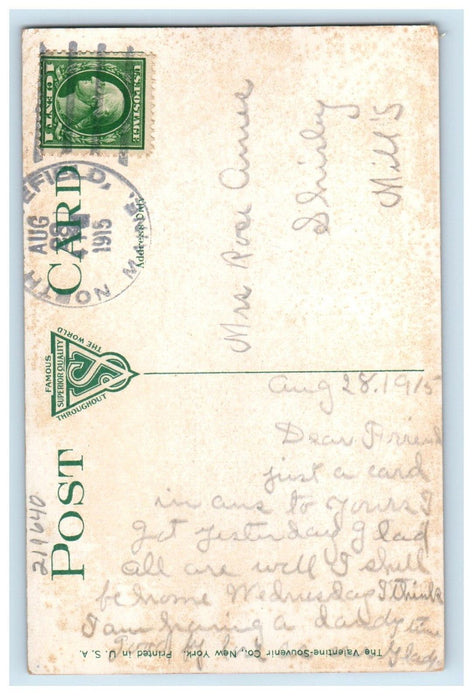 POST CARD
Address Only
FAMOUS
THROUGHOUT
THE WORLD
SUPERIOR QUALITY
U.S. POSTAGE
1 CENT 1
FIELD,
AUG
1915
NORTH MAINE
Mrs Rose Amee
Shirley
Mill's
Aug 28. 1915
Dear Friend
just a card
in ans to yours I
got yesterday Glad
all are well I shall
be home Wednesday I think
I am having a dandy time
Good by
Glady
The Valentine-Souvenir Co., New York. Printed in U. S. A.
211640